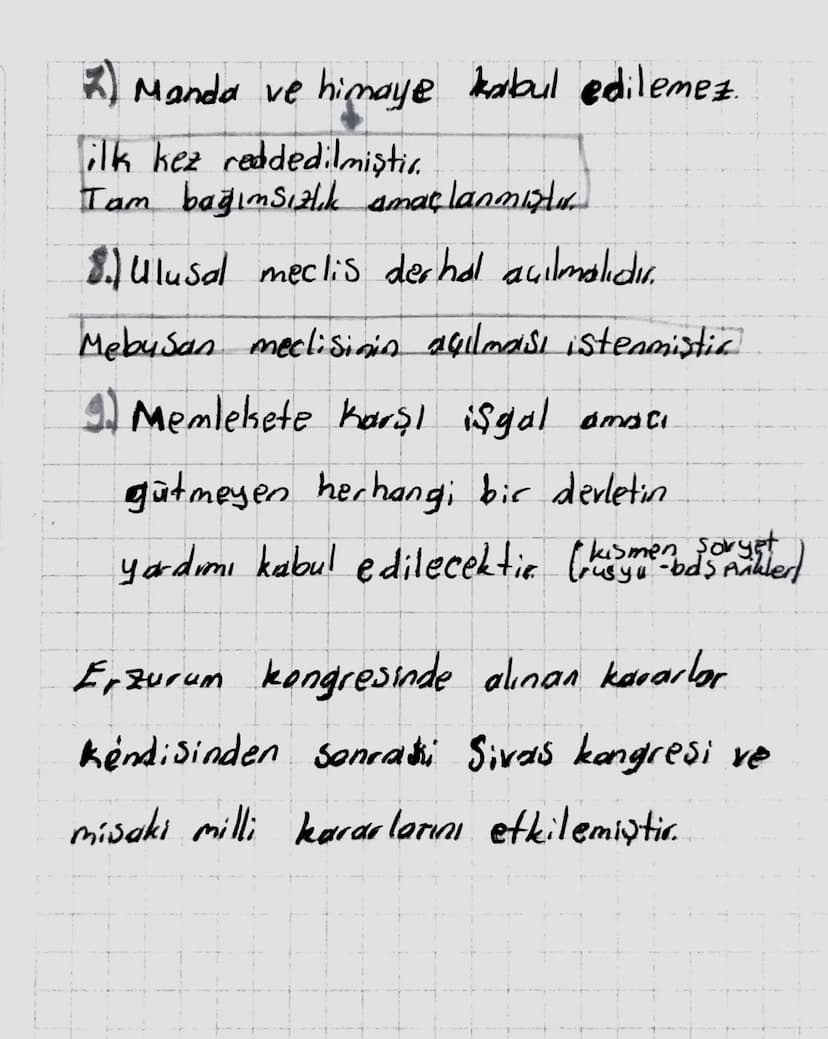 7.) Manda ve himaye kabul edilemez.
ilk kez reddedilmiştir.
Tam bağımsızlık amaçlanmıştır.
8.) Ulusal meclis derhal açılmalıdır.
Mebusan meclisinin açılması istenmiştir
9.) Memlekete karşı işgal amacı
gütmeyen herhangi bir devletin
yardımı kabul edilecektir. (kısmen sovyet
rusya -bolşevikler)
Erzurum kongresinde alınan kararlar
kendisinden sonraki Sivas kongresi ve
misaki milli kararlarını etkilemiştir.